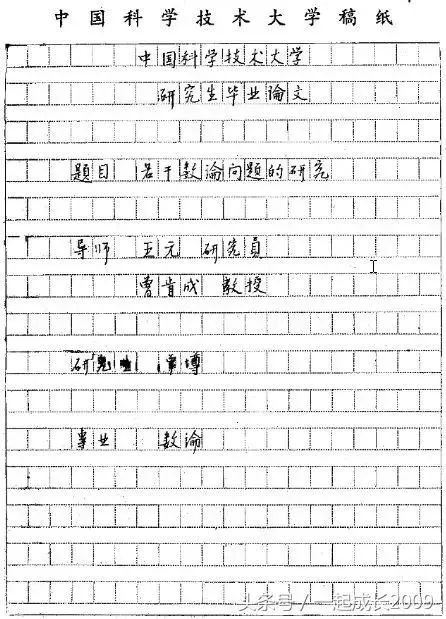 中国科学技术大学稿纸
中国科学技术大学
研究生毕业論文
题目 若干数論问题的研究
导师 王元 研究員
曹肯成 教授
研究生 常博
专业 数論
头条号/一起成长2009